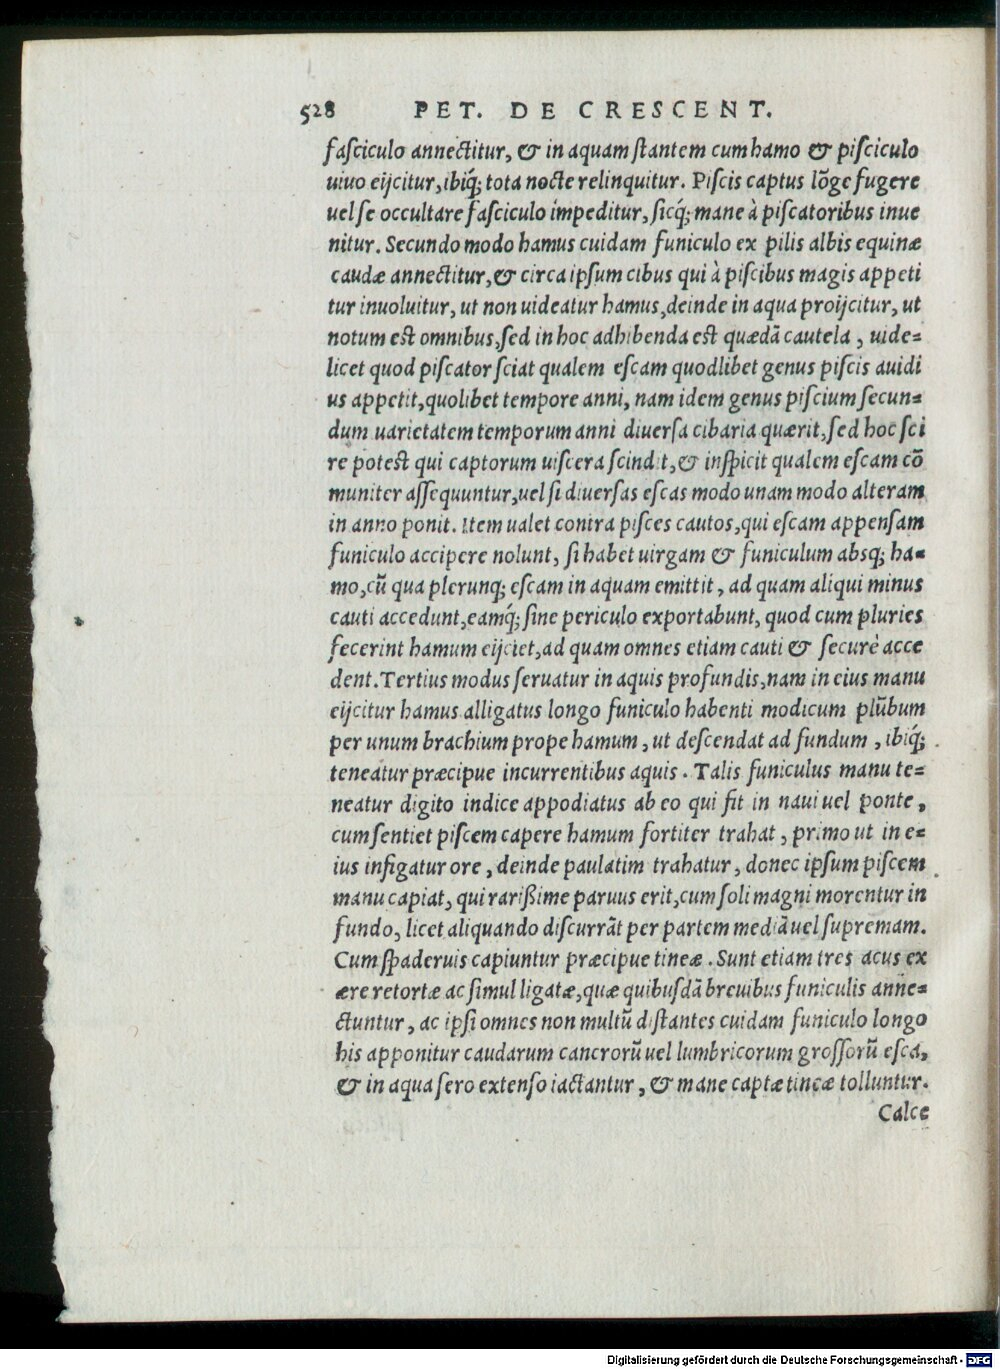 528 PET. DE CRESCENT.
faſciculo annectitur, & in aquam ſtantem cum hamo & piſciculo
uiuo eijcitur, ibiq́; tota nocte relinquitur. Piſcis captus lõge fugere
uel ſe occultare faſciculo impeditur, ſicq́; mane à piſcatoribus inue
nitur. Secundo modo hamus cuidam funiculo ex pilis albis equinæ
caudæ annectitur, & circa ipſum cibus qui à piſcibus magis appeti
tur inuoluitur, ut non uideatur hamus, deinde in aqua proijcitur, ut
notum eſt omnibus, ſed in hoc adhibenda eſt quædã cautela, uide=
licet quod piſcator ſciat qualem eſcam quodlibet genus piſcis auidi
us appetit, quolibet tempore anni, nam idem genus piſcium ſecun=
dum uarietatem temporum anni diuerſa cibaria quærit, ſed hoc ſci
re poteſt qui captorum uiſcera ſcindit, & inſpicit qualem eſcam cõ
muniter aſſequuntur, uel ſi diuerſas eſcas modo unam modo alteram
in anno ponit. Item ualet contra piſces cautos, qui eſcam appenſam
funiculo accipere nolunt, ſi habet uirgam & funiculum absq; ha=
mo, cũ qua plerunq; eſcam in aquam emittit, ad quam aliqui minus
cauti accedunt, eamq́; ſine periculo exportabunt, quod cum pluries
fecerint hamum eijciet, ad quam omnes etiam cauti & ſecurè acce
dent. Tertius modus ſeruatur in aquis profundis, nam in eius manu
eijcitur hamus alligatus longo funiculo habenti modicum plũbum
per unum brachium prope hamum, ut deſcendat ad fundum, ibiq́;
teneatur præcipue incurrentibus aquis. Talis funiculus manu te=
neatur digito indice appodiatus ab eo qui fit in naui uel ponte,
cum ſentiet piſcem capere hamum fortiter trahat, primo ut in e=
ius infigatur ore, deinde paulatim trahatur, donec ipſum piſcem
manu capiat, qui rarißime paruus erit, cum ſoli magni morentur in
fundo, licet aliquando diſcurrãt per partem mediã uel ſupremam.
Cum ſpaderuis capiuntur præcipue tineæ. Sunt etiam tres acus ex
ære retortæ ac ſimul ligatæ, quæ quibuſdã breuibus funiculis anne=
ctuntur, ac ipſi omnes non multũ diſtantes cuidam funiculo longo
his apponitur caudarum cancrorũ uel lumbricorum groſſorũ eſca,
& in aqua ſero extenſo iactantur, & mane captæ tincæ tolluntur.
Calce
Digitalisierung gefördert durch die Deutsche Forschungsgemeinschaft - DFG